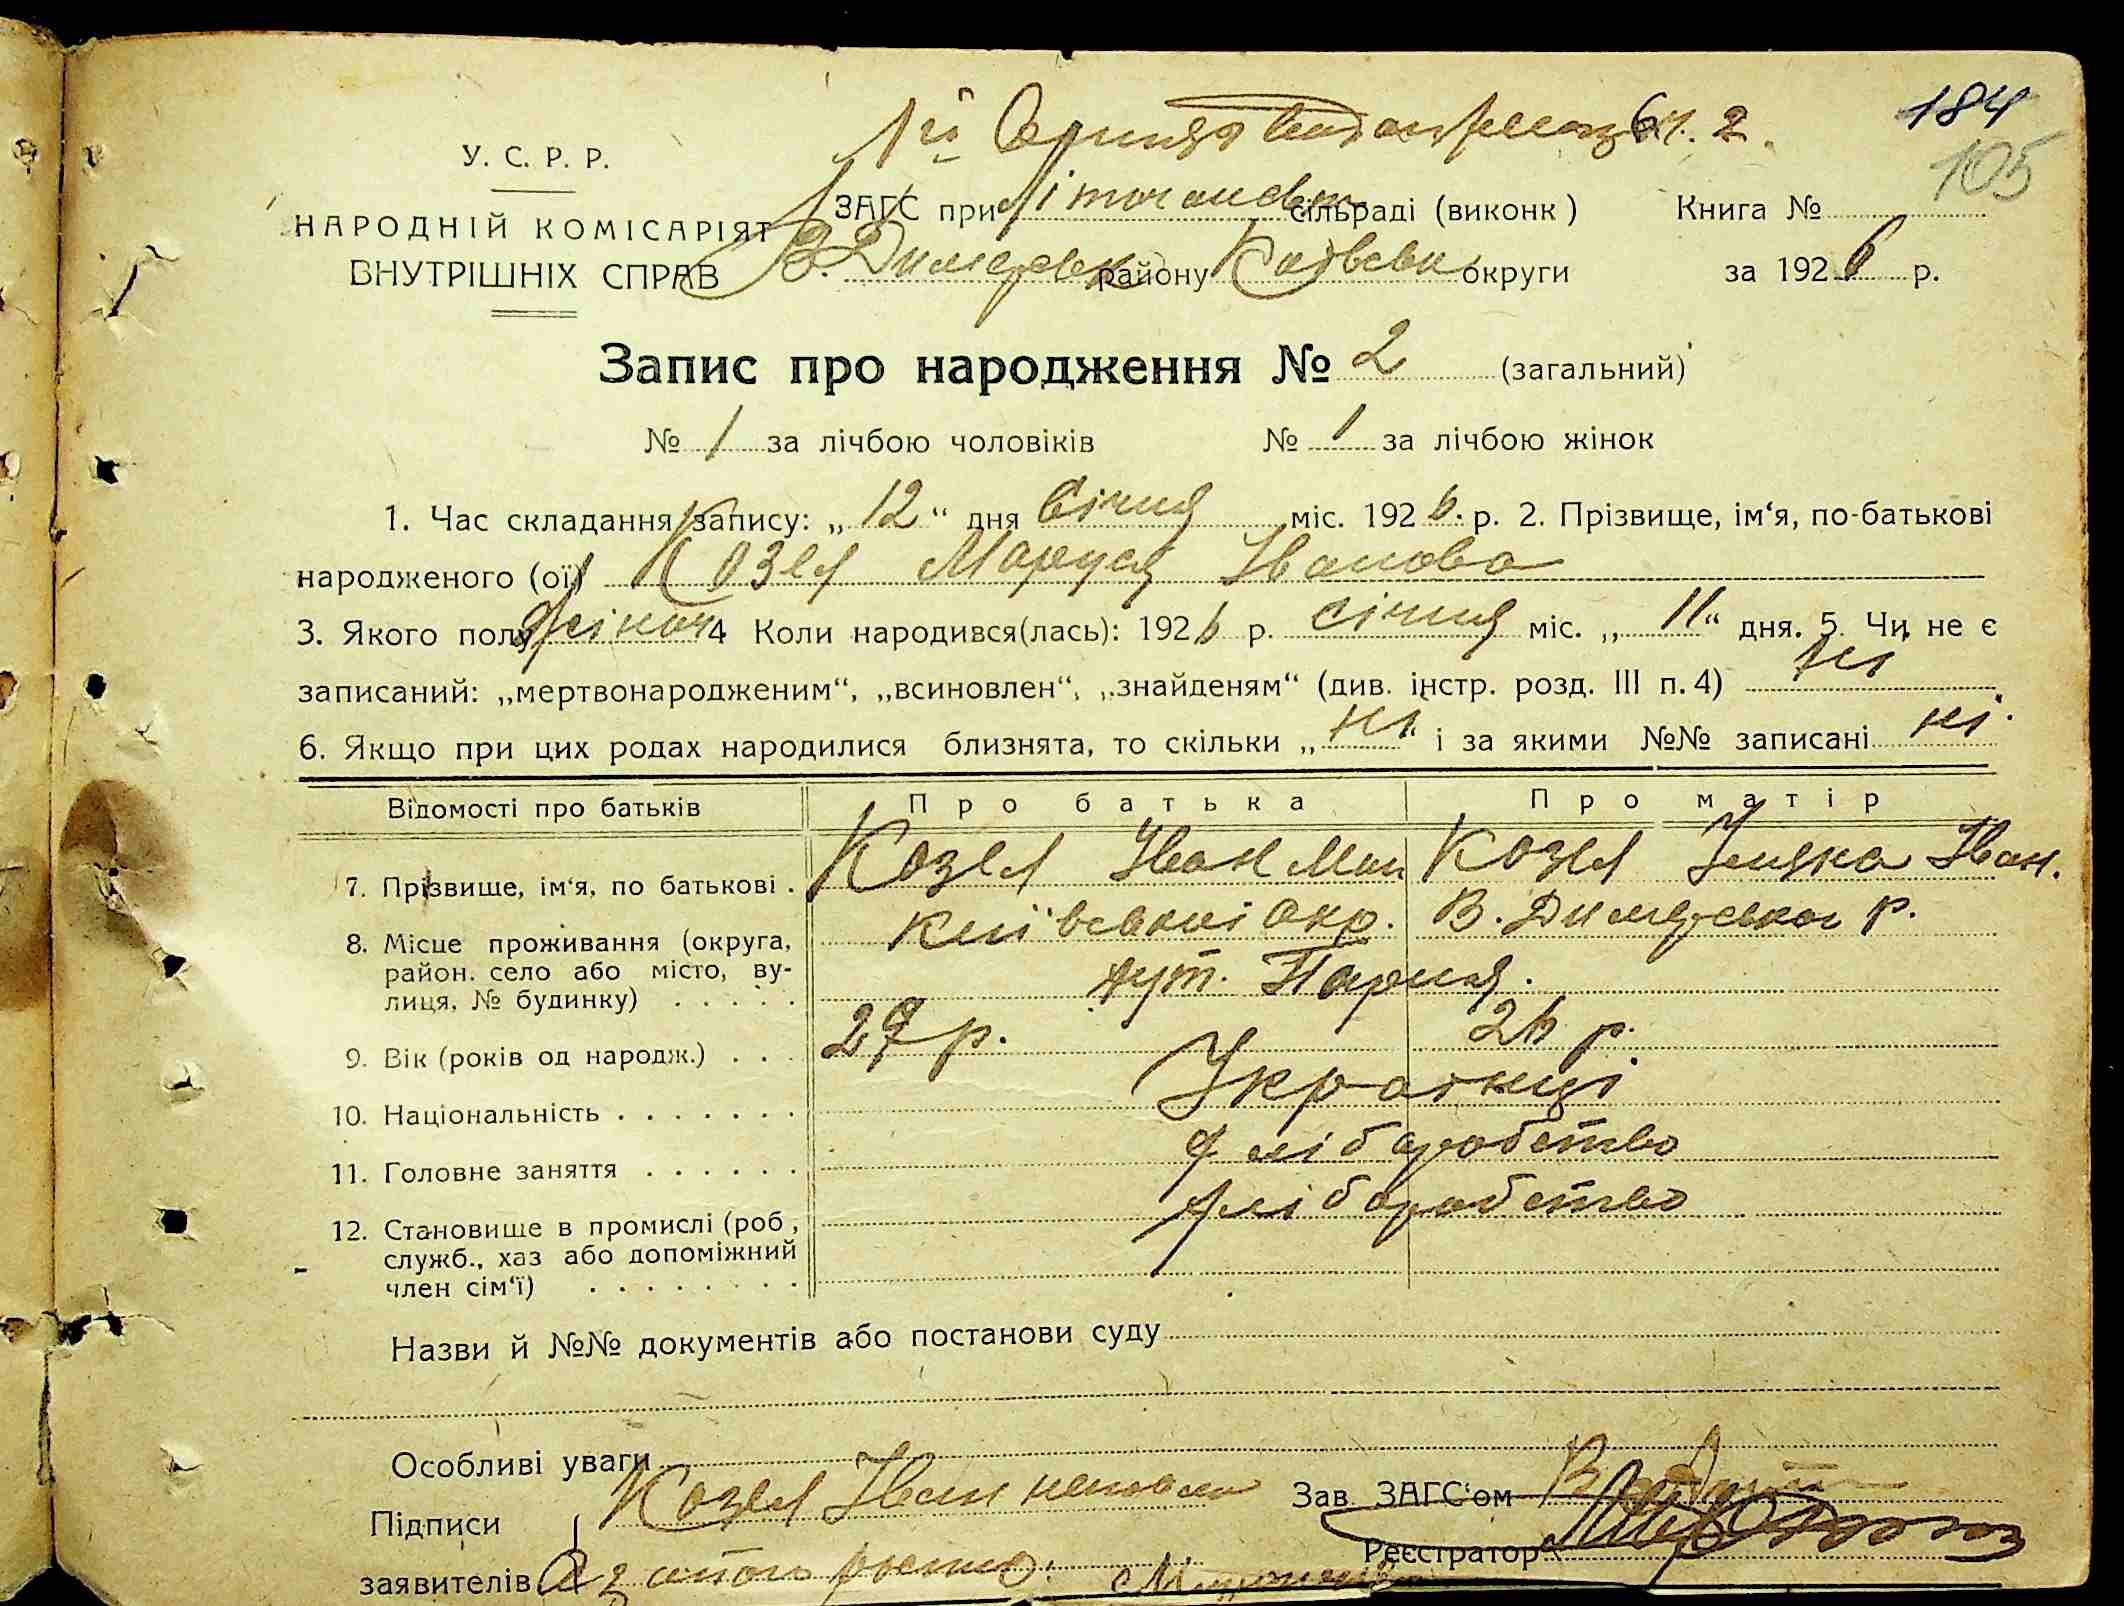 184
105
У. С. Р. Р.
НАРОДНІЙ КОМІСАРІЯТ
ВНУТРІШНІХ СПРАВ
ЗАГС при сільраді (виконк)
Книга №
В. Димерськ району Київськ округи
за 1926 р.
Запис про народження № 2 (загальний)
№ / за лічбою чоловіків № 1 за лічбою жінок
1. Час складання запису: „ 12 “ дня Січня міс. 1926. р. 2. Прізвище, ім‘я, по-батькові
народженого (ої) Козел Маруся Іванова
3. Якого полу жіноч 4 Коли народився(лась): 1926 р. січня міс. „ 11 “ дня. 5. Чи не є
записаний: „мертвонародженим“, „всиновлен“, „знайденям“ (див. інстр. розд. III п. 4) ні
6. Якщо при цих родах народилися близнята, то скільки „ ні “ і за якими №№ записані ні.
Відомості про батьків Про батька Про матір
7. Прізвище, ім‘я, по батькові . Козел Іван Козел Іван.
8. Місце проживання (округа, район. село або місто, ву-лиця, № будинку) . . . . . Київської окр. В. Димерськог р.
хут. Парня.
9. Вік (років од народж.) . . . 27 р. 26 р.
10. Національність . . . . . . . Українці
11. Головне заняття . . . . . . хліборобство
12. Становище в промислі (роб, служб., хаз або допоміжний член сім‘ї) . . . . . . . . хліборобство
Назви й №№ документів або постанови суду
Особливі уваги
Підписи Козел Іван
Зав ЗАГС‘ом
заявителів
Реєстратор